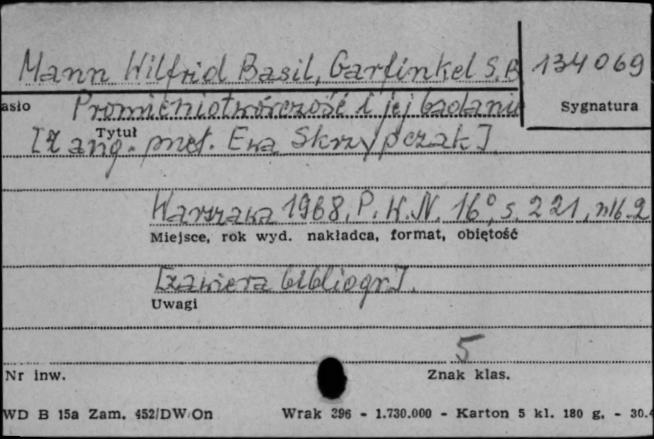 Mann Wilfrid Basil, Garfinkel S.B
134069
asło
Promieniotwórczość i jej badanie
Sygnatura
Tytuł
[z ang. przeł. Ewa Skrzypczak]
Warszawa 1968, P.W.N. 16°, s. 221, nlb. 2
Miejsce, rok wyd. nakładca, format, obiętość
[zawiera bibliogr].
Uwagi
5
Nr inw.
Znak klas.
WD B 15a Zam. 452/DW/On Wrak 396 - 1.730.000 - Karton 5 kl. 180 g. - 30.4